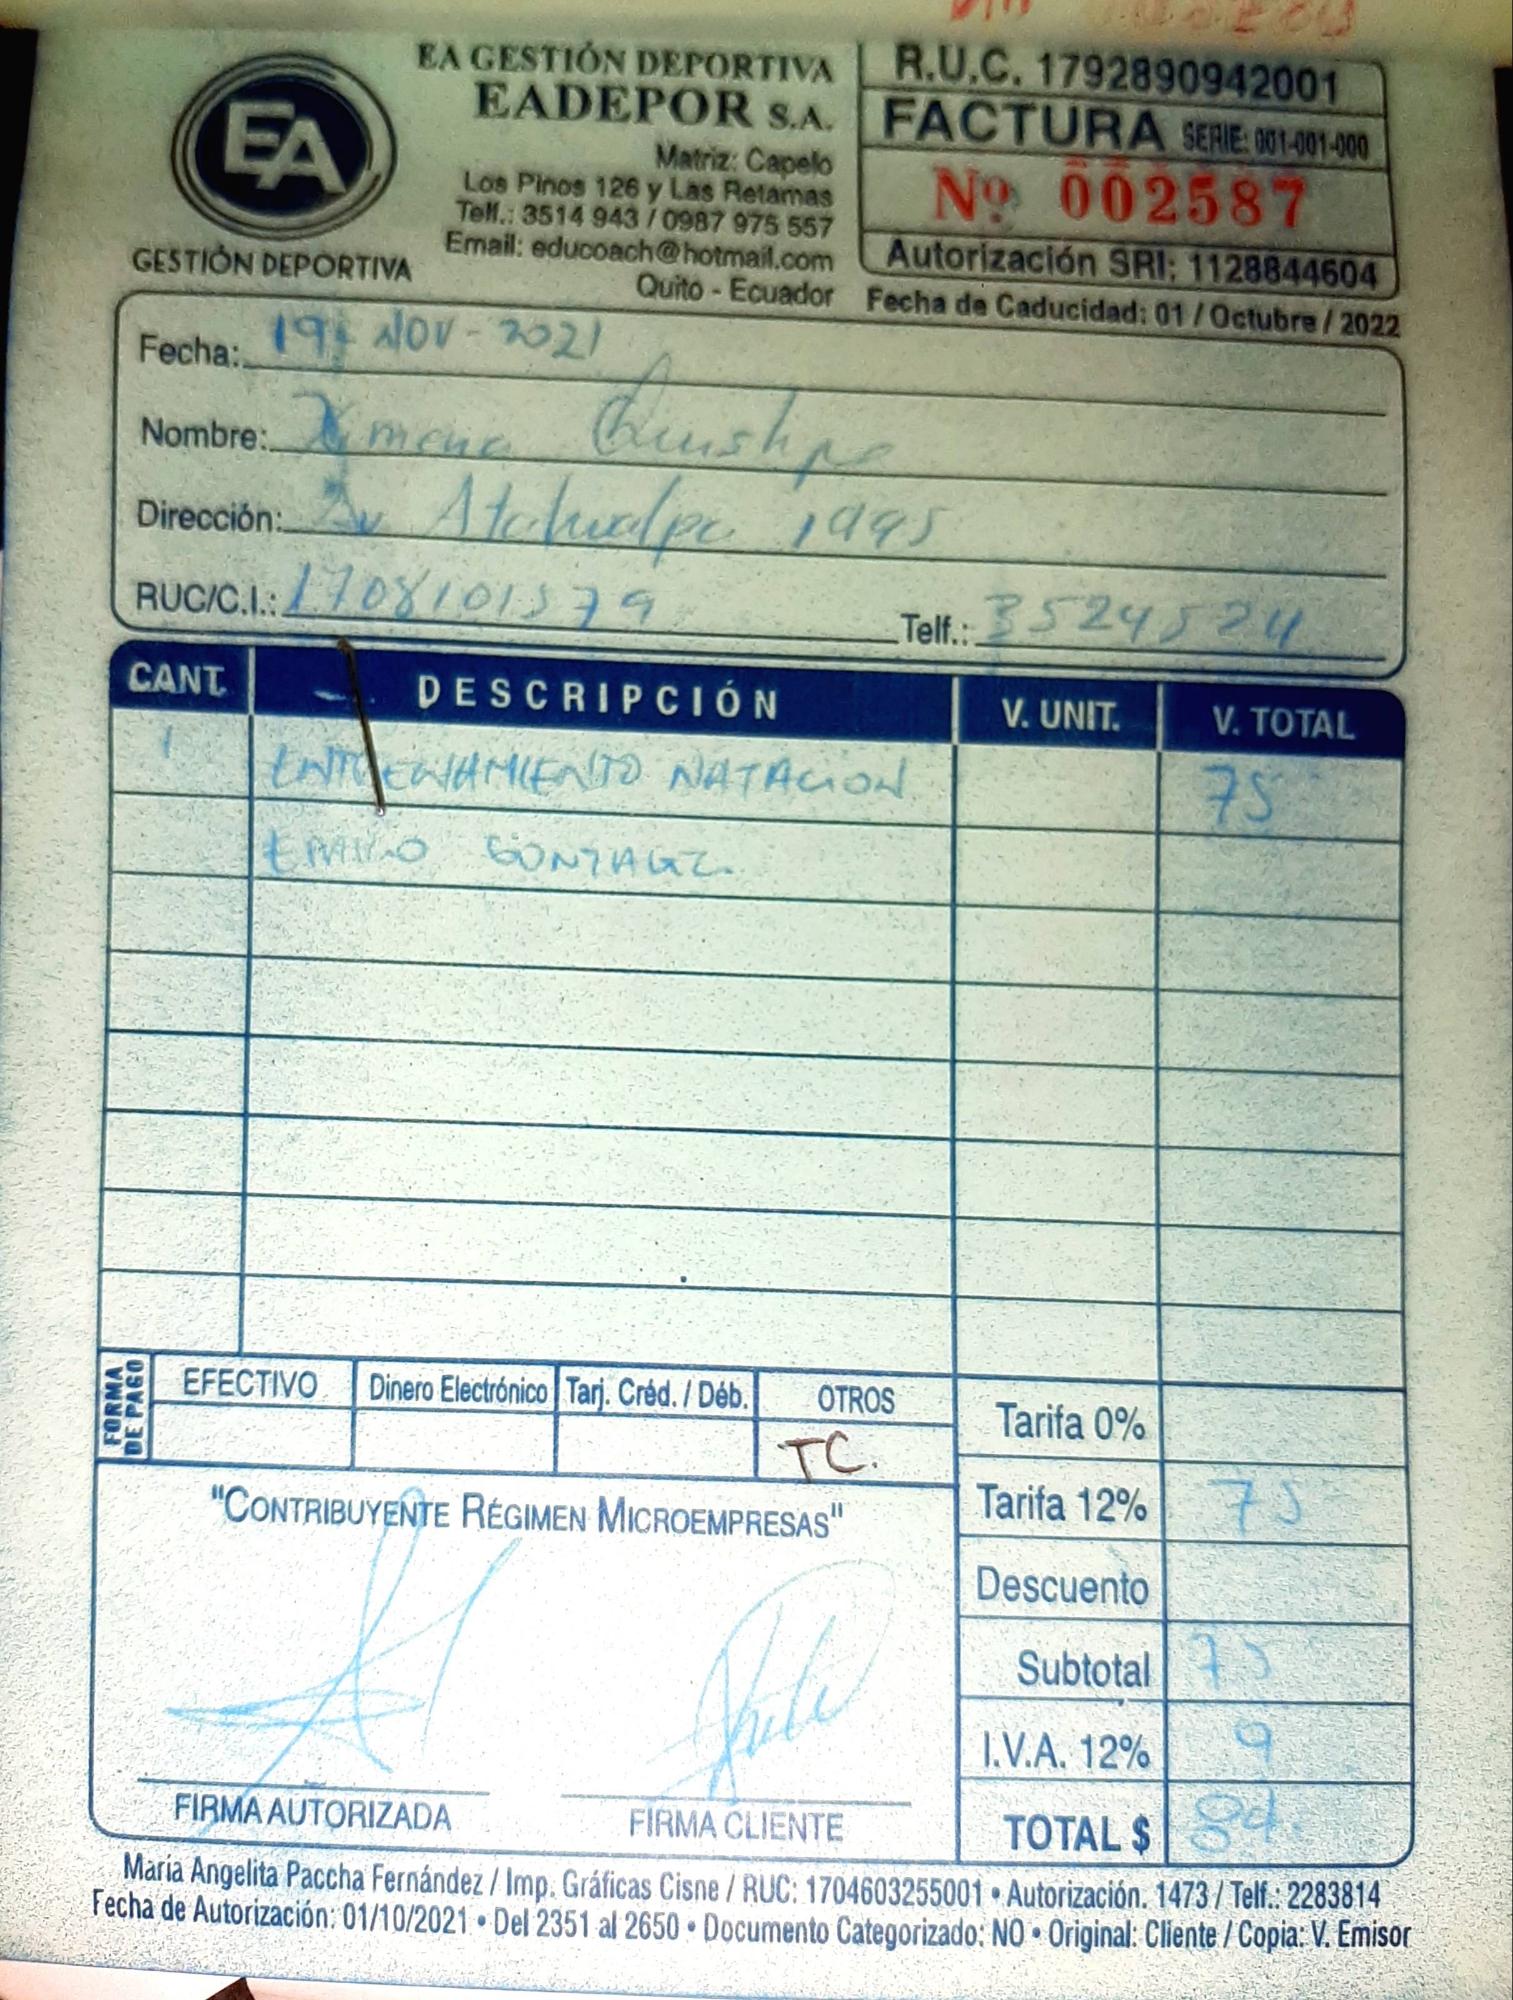 EA GESTIÓN DEPORTIVA
EADEPOR S.A.
Matriz: Capelo
Los Pinos 126 y Las Retamas
Telf.: 3514 943 / 0987 975 557
Email: educoach@hotmail.com
Quito - Ecuador
EA
GESTIÓN DEPORTIVA
R.U.C. 1792890942001
FACTURA SERIE: 001-001-000
Nº 002587
Autorización SRI: 1128844604
Fecha de Caducidad: 01 / Octubre / 2022
Fecha: 19 NOV - 2021
Nombre: Ximena Quishpe
Dirección: Av Atahualpa 1995
RUC/C.I.: 1708101579 Telf.: 3524524
CANT. DESCRIPCIÓN V. UNIT. V. TOTAL
1 ENTRENAMIENTO NATACION 75
EMILIO GONZALEZ
FORMA DE PAGO
EFECTIVO Dinero Electrónico Tarj. Créd. / Déb. OTROS
TC.
Tarifa 0%
Tarifa 12% 75
Descuento
Subtotal 75
I.V.A. 12% 9
TOTAL $ 84.
"CONTRIBUYENTE RÉGIMEN MICROEMPRESAS"
FIRMA AUTORIZADA FIRMA CLIENTE
María Angelita Paccha Fernández / Imp. Gráficas Cisne / RUC: 1704603255001 • Autorización. 1473 / Telf.: 2283814
Fecha de Autorización: 01/10/2021 • Del 2351 al 2650 • Documento Categorizado: NO • Original: Cliente / Copia: V. Emisor